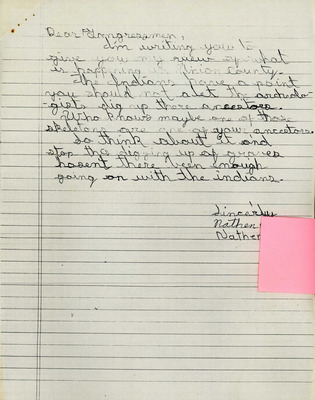 Dear Congressmen,
I'm writing you to
give you my view of what
is happing in Union County.
The Indians have a point
you should not alet the archolo-
gists dig up there ancestors.
Who knows maybe one of those
skeletons are one of your ancestors.
So think about it and
stop the digging up of graves
hasent there been enough
going on with the indians.
Sincerly
Nathen
Nathen